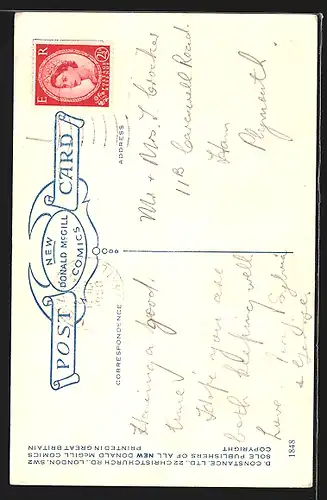 POST CARD
NEW
DONALD McGILL
COMICS
E R
2½D
CORRESPONDENCE
ADDRESS
Having a good
time
Hope you are
both keeping well
Love from Sylvia
& George
Mr & Mrs L Crocker
11B Carswell Road.
Ham
Plymouth.
D. CONSTANCE, LTD., 22 CHRISTCHURCH RD., LONDON, SW2
SOLE PUBLISHERS OF ALL NEW DONALD McGILL COMICS
COPYRIGHT
PRINTED IN GREAT BRITAIN
1848